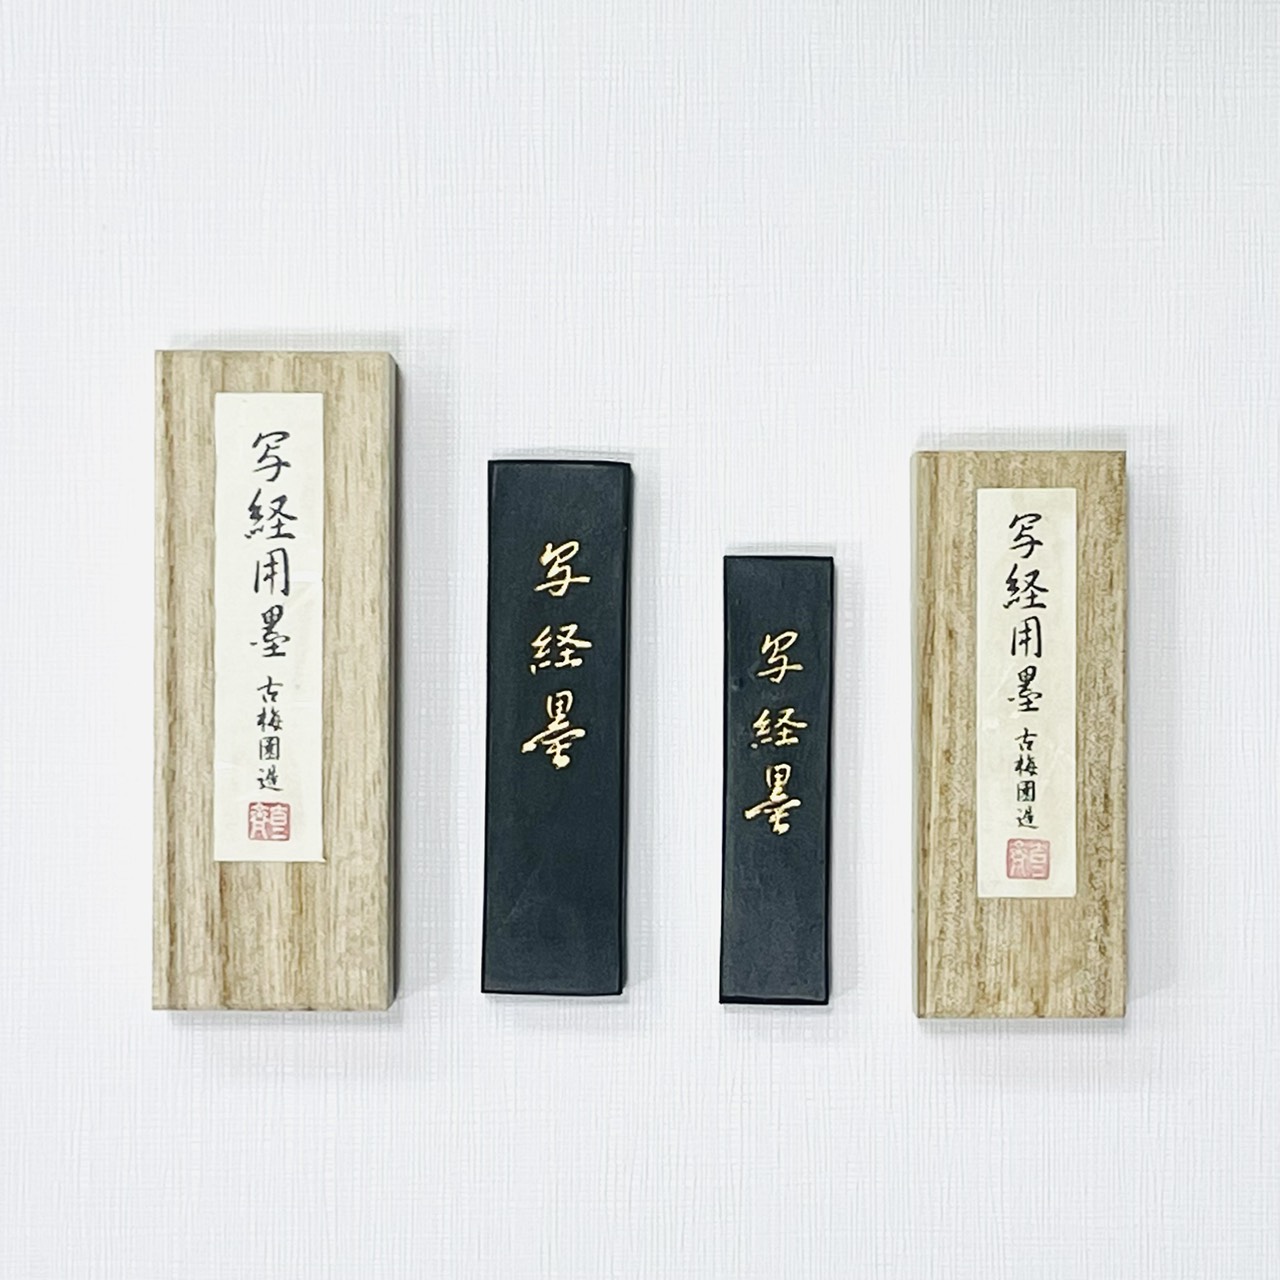 写経用墨 古梅園造
写経墨
写経墨
写経用墨 古梅園造